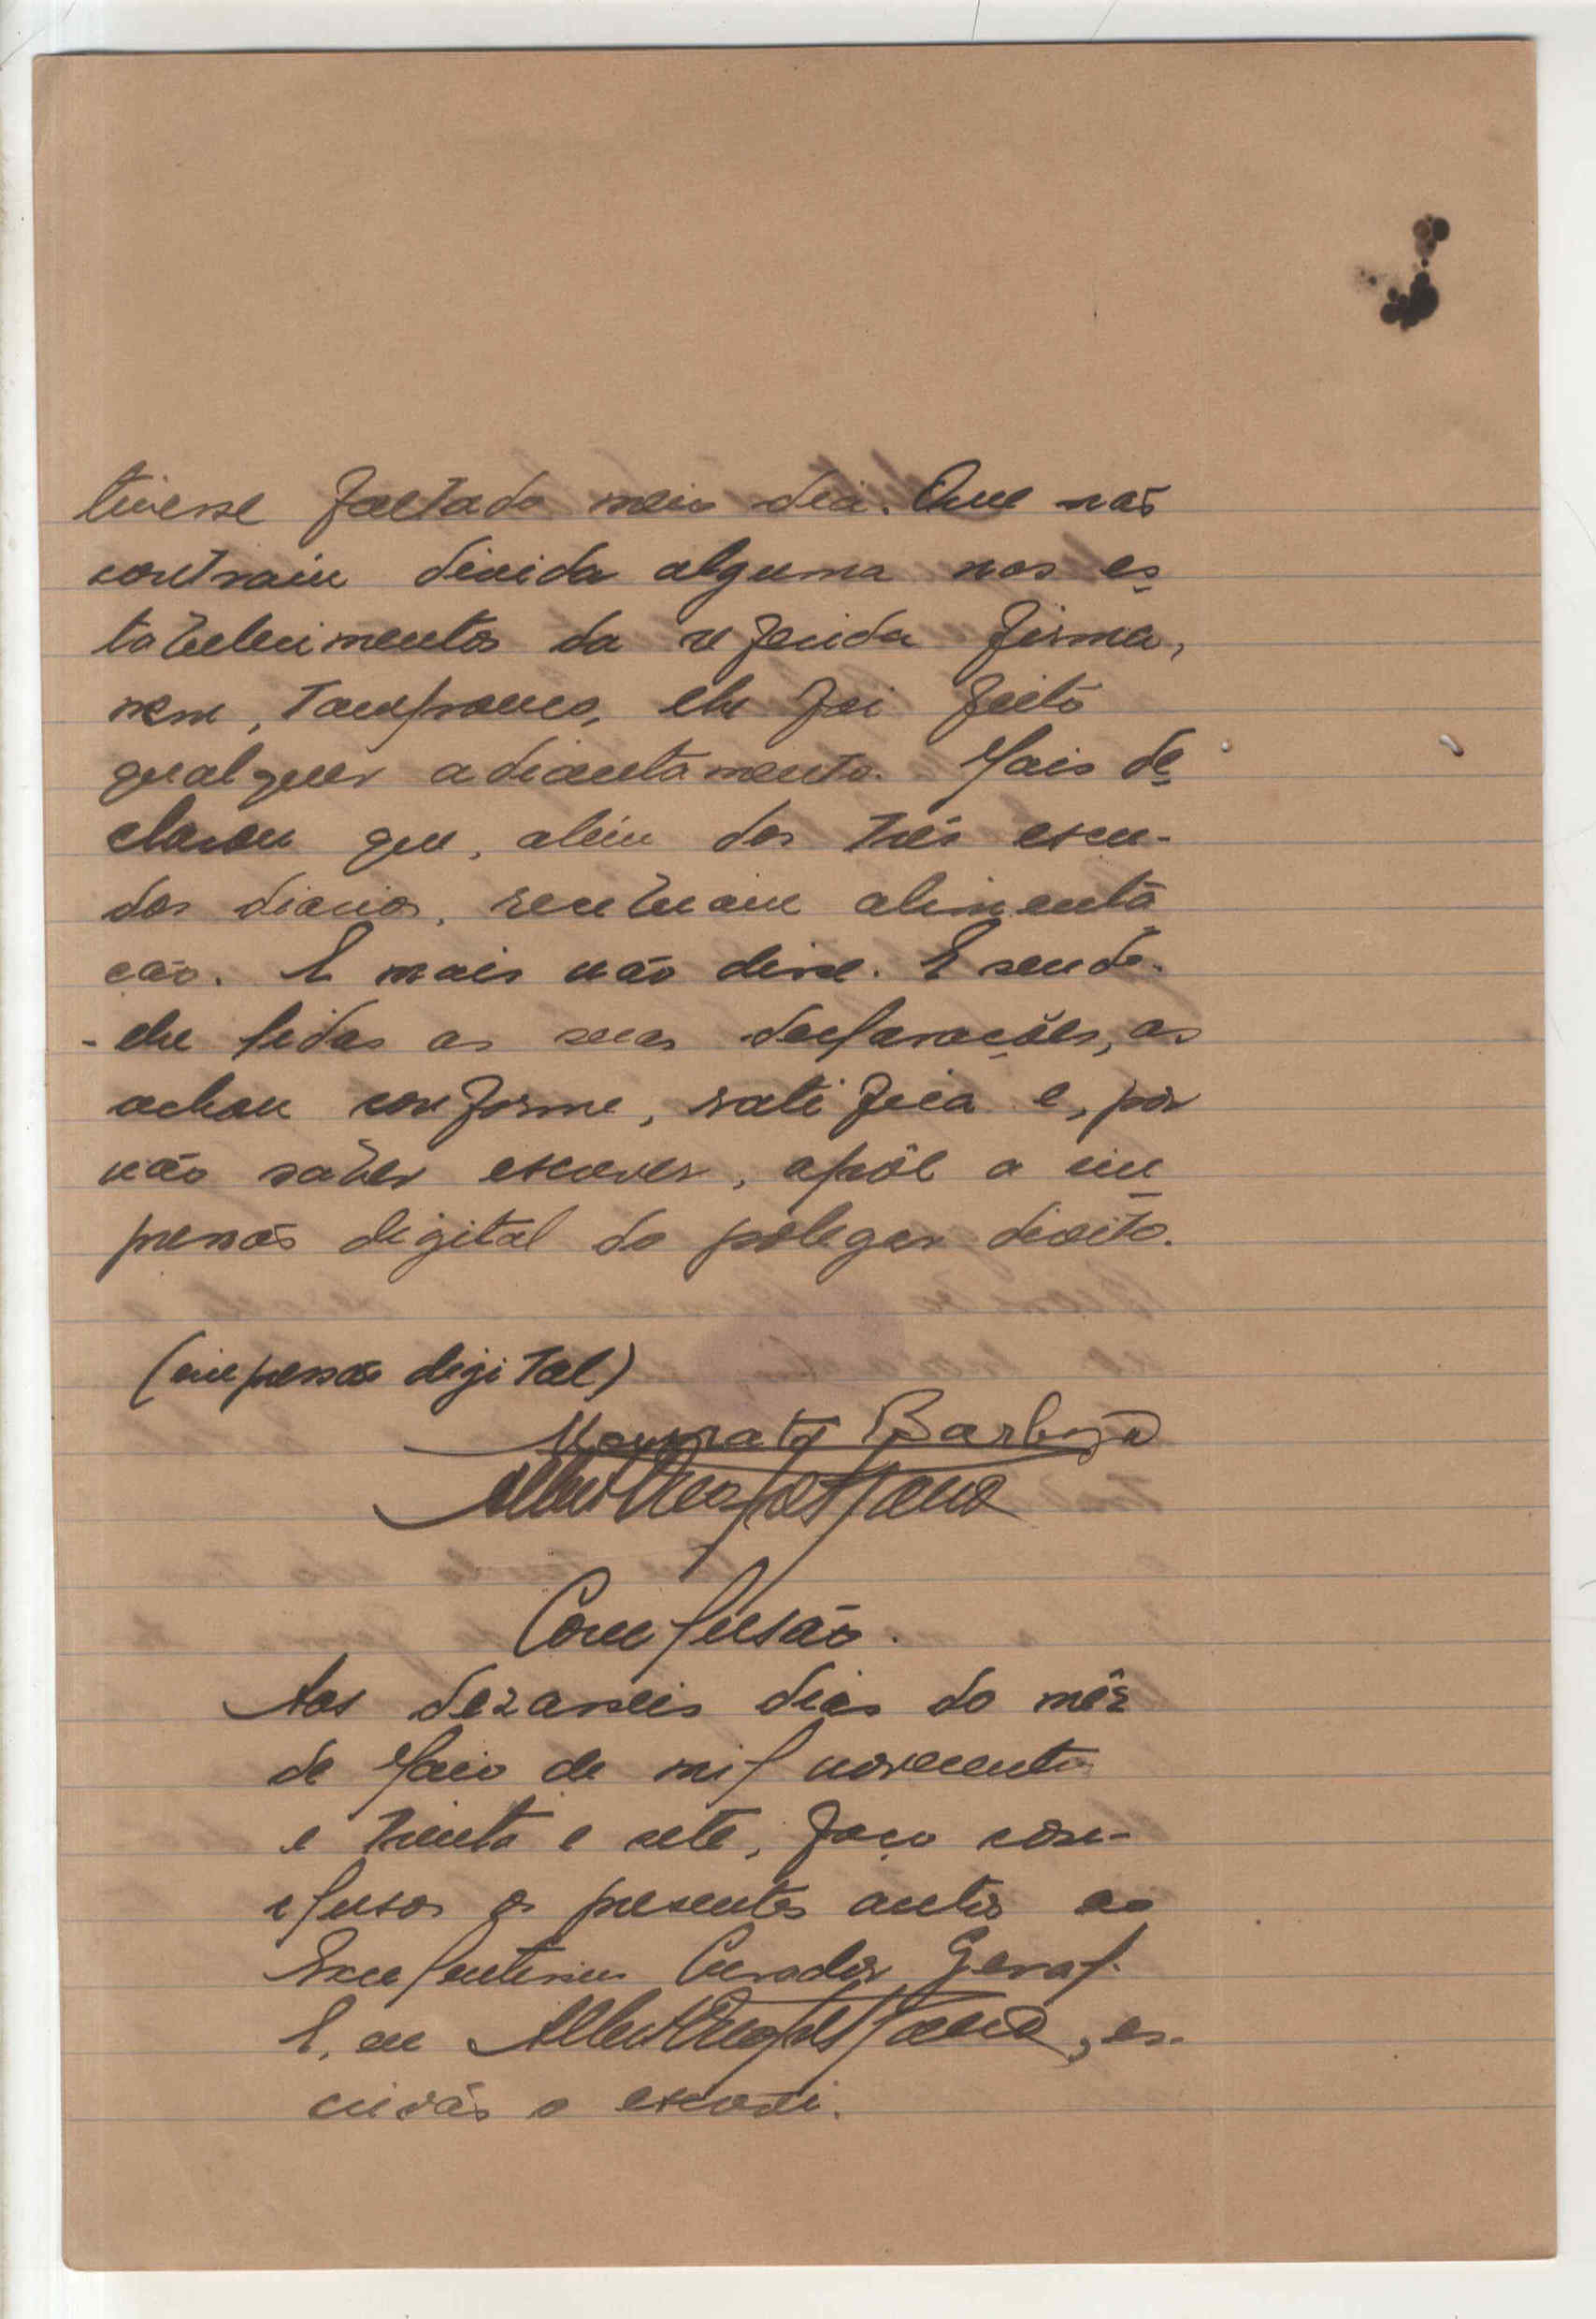 tivesse faltado meio dia. Que não
contraiu divida alguma nos es
tabelecimentos da referida firma,
nem, tampouco, lhe foi feito
qualquer adiantamento. Mais de
clarou que, além dos três escu-
dos diarios, recebiam alimenta
ção. E mais não disse. E sendo-
-lhe lidas as suas declarações, as
achou conforme, ratifica e, por
não saber escrever, apõe a im
pressão digital do polegar direito.
(impressão digital)
Barbosa
Conclusão.
Aos dezasseis dias do mês
de Maio de mil novecentos
e trinta e sete, faço con-
clusos os presentes autos ao
Excelentissimo Curador Geral.
E, eu , es-
crivão o escrevi.